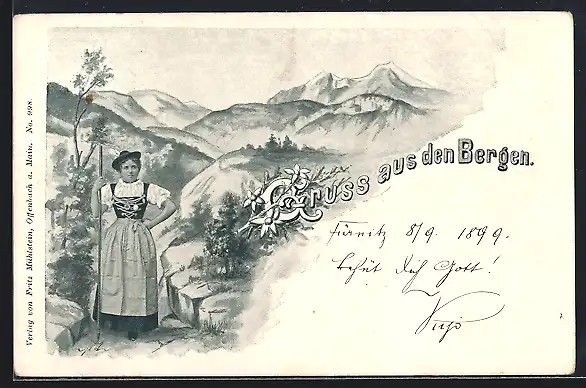 Verlag von Fritz Mühlstein, Offenbach a. Main. No. 998.
Gruss aus den Bergen.
Fürnitz 8/9. 1899.
Behüt Dich Gott!